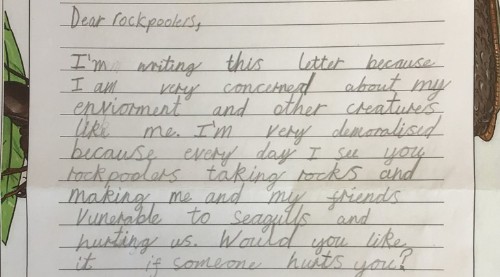 Dear rockpoolers,
I'm writing this letter because
I am very concerned about my
enviorment and other creatures
like me. I'm very demoralised
because every day I see you
rockpoolers taking rocks and
making me and my friends
vunerable to seagulls and
hurting us. Would you like
it if someone hurts you?